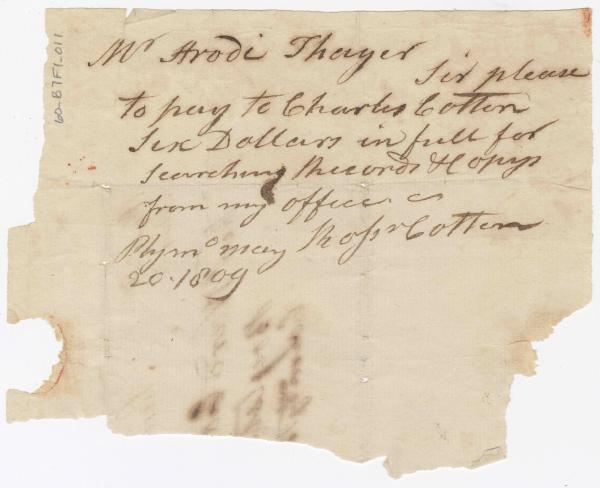 60-B7F1-011
Mr Arodi Thayer
Sir please
to pay to Charles Cotton
Six Dollars in full for
searching Records & Copys
from my office
Plymo may Rossr Cotton
20. 1809